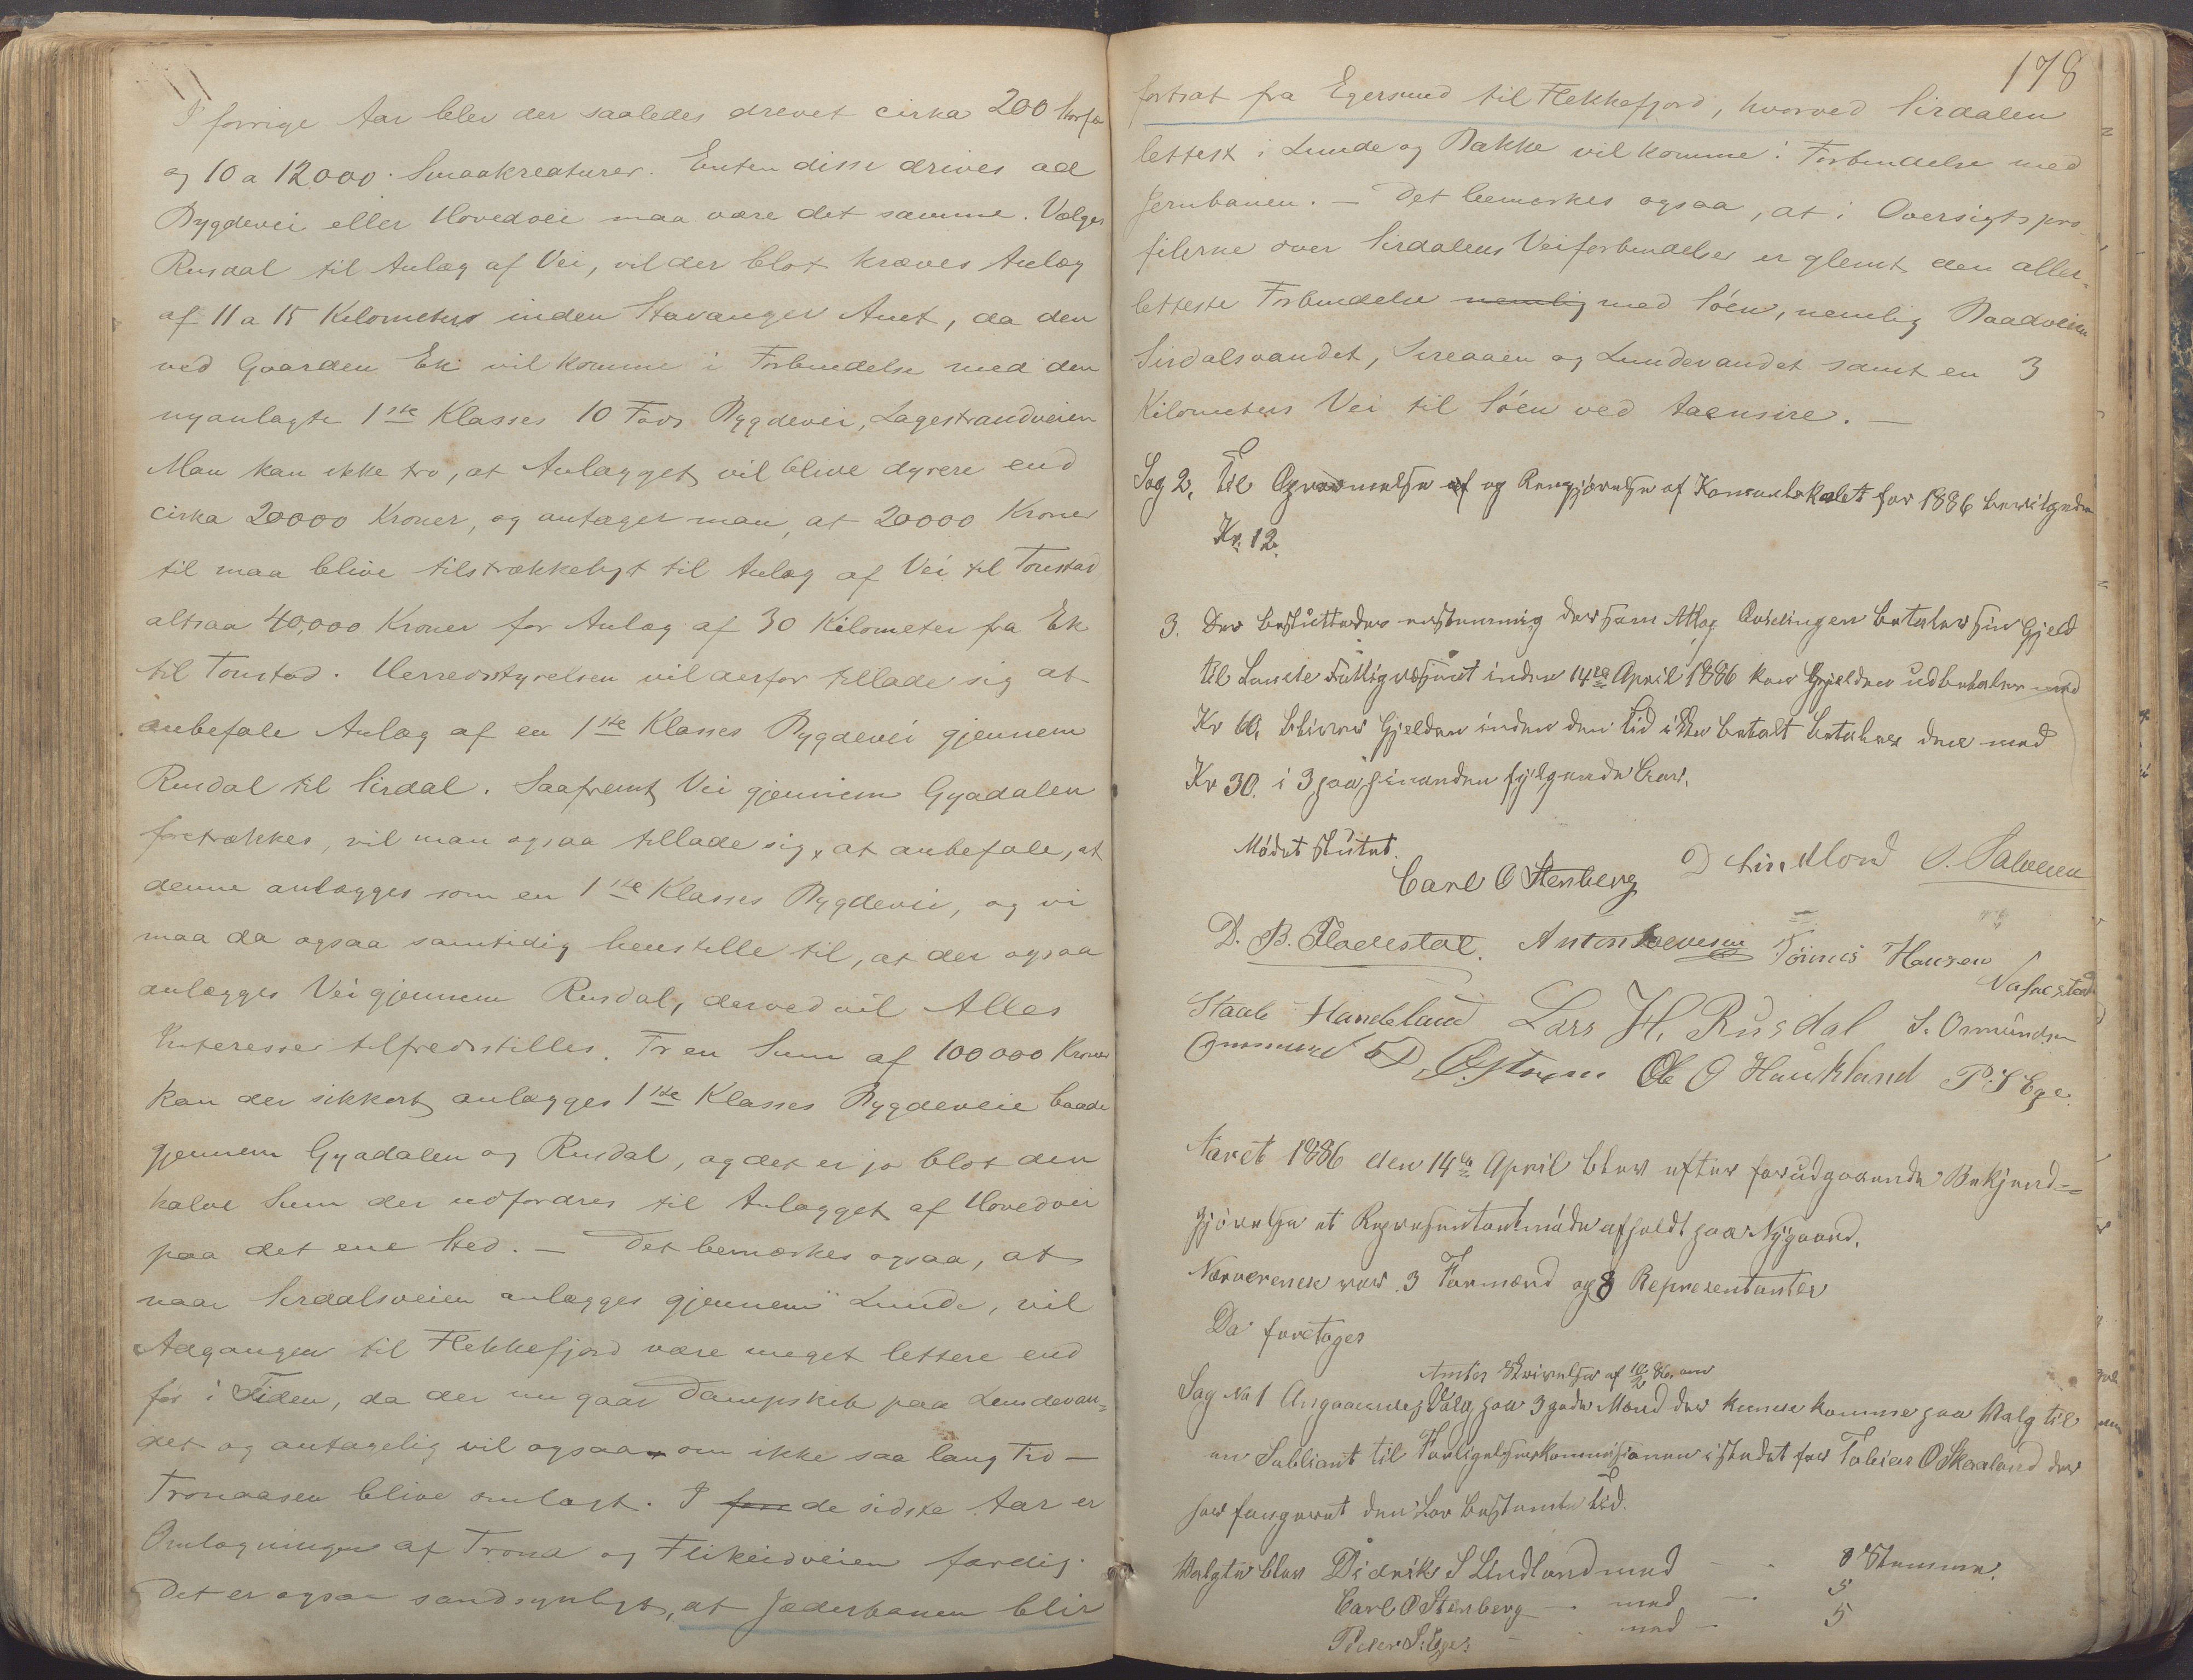 I forrige Aar blev der saaledes drevet cirka 200 Storfæ
og 10 a 12,000 Smaakreaturer. Enten disse drives ad
Bygdevei eller Hovedvei maa være det samme. Vælges
Rusdal til Anlæg af Vei, vil der blot kræves Anlæg
af 11 a 15 Kilometers inden Stavanger Amt, da den
ved Gaarden Ek vil komme i Forbindelse med den
nyanlagte 1ste Klasses 10 Fods Bygdevei, Lagestrandveien
Man kan ikke tro, at Anlægget vil blive dyrere end
cirka 20000 Kroner, og antager man, at 20000 Kroner
til maa blive tilstrækkeligt til Anlæg af Vei til Tonstad
altsaa 40,000 Kroner for Anlæg af 30 Kilometer fra Ek
til Tonstad. Herredsstyrelsen vil derfor tillade sig at
anbefale Anlæg af en 1ste Klasses Bygdevei gjennem
Rusdal til Sirdal. Saafremt Vei gjennem Gyadalen
foretrækkes, vil man ogsaa tillade sig, at anbefale, at
denne anlægges som en 1ste Klasses Bygdevei, og vi
maa da ogsaa samtidig henstille til, at der ogsaa
anlægges Vei gjennem Rusdal, derved vil Alles
Interesser tilfredsstilles. For en Sum af 100000 Kroner
kan der sikkert anlægges 1ste Klasses Bygdeveie baade
gjennem Gyadalen og Rusdal, og det er jo blot den
halve Sum der udfordres til Anlægget af Hovedvei
paa det ene Sted. — Det bemærkes ogsaa, at
naar Sirdalsveien anlægges gjennem Lunde, vil
Adgangen til Flekkefjord være meget lettere end
før i Tiden, da der nu gaar Dampskib paa Lundevan=
det og antagelig vil ogsaa om ikke saa lang Tid —
Tronaasen blive omlagt. I de sidste Aar er
Omlægningen af Trona og Flikeidveien færdig.
Det er ogsaa sandsynligt, at Jæderbanen blir
178
fortsat fra Egersund til Flekkefjord, hvorved Sirdalen
lettest i Lunde og Bakke vil komme i Forbindelse med
Jernbanen. — Det bemerkes ogsaa, at i Oversigtspro
filerne over Sirdalens Veiforbindelser er glemt den aller-
letteste Forbindelse nemlig med Søen, nemlig Baadveien
Sirdalsvandet, Sireaaen og Lundevandet samt en 3
Kilometers Vei til Søen ved Aaensire. —
Sag 2. Til Opvarmelse af og Rengjørelse af Komunelokalet for 1886 bevilgedes
Kr. 12.
3. Der besluttedes enstemmig dersom Atlag Qvidingen betaler sin Gjeld
til Lunde Fattigvæsenet inden 14de April 1886 kan Gjelden udbetales med
Kr 60, bliver Gjelden inden den Tid ikke betalt betales den med
Kr 30. i 3 paa hinanden fylgende Aar.
Mødet sluttet.
Carl O Stenberg D Lindland S. Salvesen
D. B. Fladestøl. Anton Tønnis Hansen
Staale Handeland Lars H. Rusdal S. Osmundsen
Ole O Haukland P. S Ege.
Aaret 1886 den 14de April blev efter forudgaaende Bekjend=
gjørelse et Representantmøde afholdt paa Nygaard.
Nærverende var 3 Formænd og 8 Representanter
Da foretages
Amtes Skrivelse af 10/2 86 om
Sag No 1 Angaaende Valg paa 3 gode Mænd der kunde komme paa Valg til
en Subliant til Forligelseskommisionen istedet for Tobias O Skaaland der
har fungeret den Lov bestemte tid.
Valgte blev Didrik S Lindland med 8 Stemmer.
Carl O Stenberg — med — 5
Peder S. Ege — med — 5